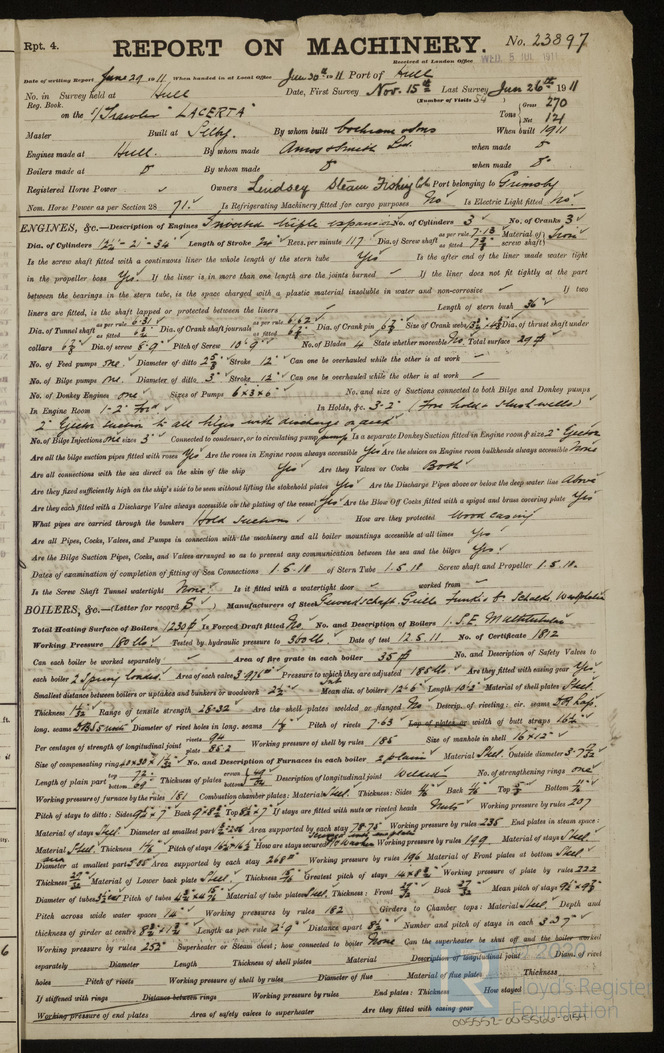 Rpt. 4.
REPORT ON MACHINERY.
No. 23897
Received at London Office WED. 5 JUL 1911
Date of writing Report June 29 1911 When handed in at Local Office Jun 30th 11 Port of Hull
No. in Survey held at Hull Date, First Survey Nov. 15th Last Survey Jun 26th 1911
Reg. Book. (Number of Visits 54)
on the S/Trawler "LACERTA" Tons Gross 270 Net 121
Master Built at Selby. By whom built Cochrane & Sons When built 1911
Engines made at Hull. By whom made Amos & Smith Ltd. when made
Boilers made at By whom made when made
Registered Horse Power Owners Lindsey Steam Fishing Co Port belonging to Grimsby
Nom. Horse Power as per Section 28 71. Is Refrigerating Machinery fitted for cargo purposes No Is Electric Light fitted No.
ENGINES, &c.—Description of Engines Inverted triple expansion No. of Cylinders 3 No. of Cranks 3
Dia. of Cylinders 12½-21-34 Length of Stroke Revs. per minute 117 Dia. of Screw shaft as per rule 7.13 as fitted Material of screw shaft Iron
Is the screw shaft fitted with a continuous liner the whole length of the stern tube Yes Is the after end of the liner made water tight
in the propeller boss Yes. If the liner is in more than one length are the joints burned If the liner does not fit tightly at the part
between the bearings in the stern tube, is the space charged with a plastic material insoluble in water and non-corrosive If two
liners are fitted, is the shaft lapped or protected between the liners Length of stern bush 36"
Dia. of Tunnel shaft as per rule 6.31 as fitted Dia. of Crank shaft journals as per rule 6.62 as fitted Dia. of Crank pin Size of Crank webs Dia. of thrust shaft under
collars Dia. of screw 8'-9" Pitch of Screw 10'-9" No. of Blades 4 State whether moveable No Total surface 29
No. of Feed pumps one. Diameter of ditto Stroke 12" Can one be overhauled while the other is at work
No. of Bilge pumps one. Diameter of ditto 3" Stroke 12" Can one be overhauled while the other is at work
No. of Donkey Engines one Sizes of Pumps 6 x 3 x 6 No. and size of Suctions connected to both Bilge and Donkey pumps
In Engine Room 1-2" In Holds, &c. 3-2" (Fore hold & slush wells)
2" Ejector suction to all bilges with discharge on deck
No. of Bilge Injections one sizes 3" Connected to condenser, or to circulating pump pump Is a separate Donkey Suction fitted in Engine room & size 2" Ejector
Are all the bilge suction pipes fitted with roses Yes Are the roses in Engine room always accessible Yes Are the sluices on Engine room bulkheads always accessible None
Are all connections with the sea direct on the skin of the ship Yes Are they Valves or Cocks Both
Are they fixed sufficiently high on the ship's side to be seen without lifting the stokehold plates Yes Are the Discharge Pipes above or below the deep water line Above
Are they each fitted with a Discharge Valve always accessible on the plating of the vessel Yes Are the Blow Off Cocks fitted with a spigot and brass covering plate Yes
What pipes are carried through the bunkers Hold Suctions How are they protected Wood casing
Are all Pipes, Cocks, Valves, and Pumps in connection with the machinery and all boiler mountings accessible at all times Yes
Are the Bilge Suction Pipes, Cocks, and Valves arranged so as to prevent any communication between the sea and the bilges Yes.
Dates of examination of completion of fitting of Sea Connections 1.5.10 of Stern Tube 1.5.10 Screw shaft and Propeller 1.5.10.
Is the Screw Shaft Tunnel watertight None Is it fitted with a watertight door worked from
BOILERS, &c.—(Letter for record S) Manufacturers of Steel
Total Heating Surface of Boilers 1230 Is Forced Draft fitted No. No. and Description of Boilers 1. S.E. Multitubular
Working Pressure 180 lbs Tested by hydraulic pressure to 360 lbs Date of test 12.5.11 No. of Certificate 1812
Can each boiler be worked separately Area of fire grate in each boiler 35 No. and Description of Safety Valves to
each boiler 2 Spring loaded. Area of each valve 3.976 Pressure to which they are adjusted 185 lbs Are they fitted with easing gear Yes
Smallest distance between boilers or uptakes and bunkers or woodwork Mean dia. of boilers 12'-6" Length 10'-2" Material of shell plates Steel
Thickness Range of tensile strength 28-32 Are the shell plates welded or flanged No Descrip. of riveting: cir. seams D.R Lap.
long. seams Diameter of rivet holes in long. seams Pitch of rivets 7.63 Lap of plates or width of butt straps
Per centages of strength of longitudinal joint rivets 94 plate 85.2 Working pressure of shell by rules 185 Size of manhole in shell 16" x 12"
Size of compensating ring No. and Description of Furnaces in each boiler 2 plain Material Steel Outside diameter
Length of plain part top 72 bottom 69 Thickness of plates crown bottom Description of longitudinal joint Welded No. of strengthening rings one
Working pressure of furnace by the rules 181 Combustion chamber plates: Material Steel Thickness: Sides Back Top Bottom
Pitch of stays to ditto: Sides Back Top If stays are fitted with nuts or riveted heads Nuts Working pressure by rules 207
Material of stays Steel Diameter at smallest part Area supported by each stay 78.75 Working pressure by rules 235 End plates in steam space:
Material Steel Thickness Pitch of stays How are stays secured Working pressure by rules 199 Material of stays Steel
Diameter at smallest part 5.85 Area supported by each stay 268 Working pressure by rules 196 Material of Front plates at bottom Steel
Thickness Material of Lower back plate Steel Thickness Greatest pitch of stays Working pressure of plate by rules 222
Diameter of tubes Pitch of tubes Material of tube plates Steel Thickness: Front Back Mean pitch of stays
Pitch across wide water spaces 14" Working pressures by rules 182 Girders to Chamber tops: Material Steel Depth and
thickness of girder at centre Length as per rule 2'-9" Distance apart Number and pitch of stays in each 3.37
Working pressure by rules 252 Superheater or Steam chest; how connected to boiler None Can the superheater be shut off and the boiler worked
separately Diameter Length Thickness of shell plates Material Description of longitudinal joint Diam. of rivet
holes Pitch of rivets Working pressure of shell by rules Diameter of flue Material of flue plates Thickness
If stiffened with rings Distance between rings Working pressure by rules End plates: Thickness How stayed
Working pressure of end plates Area of safety valves to superheater Are they fitted with easing gear
Lloyd's Register
Foundation
005552-005566-0154